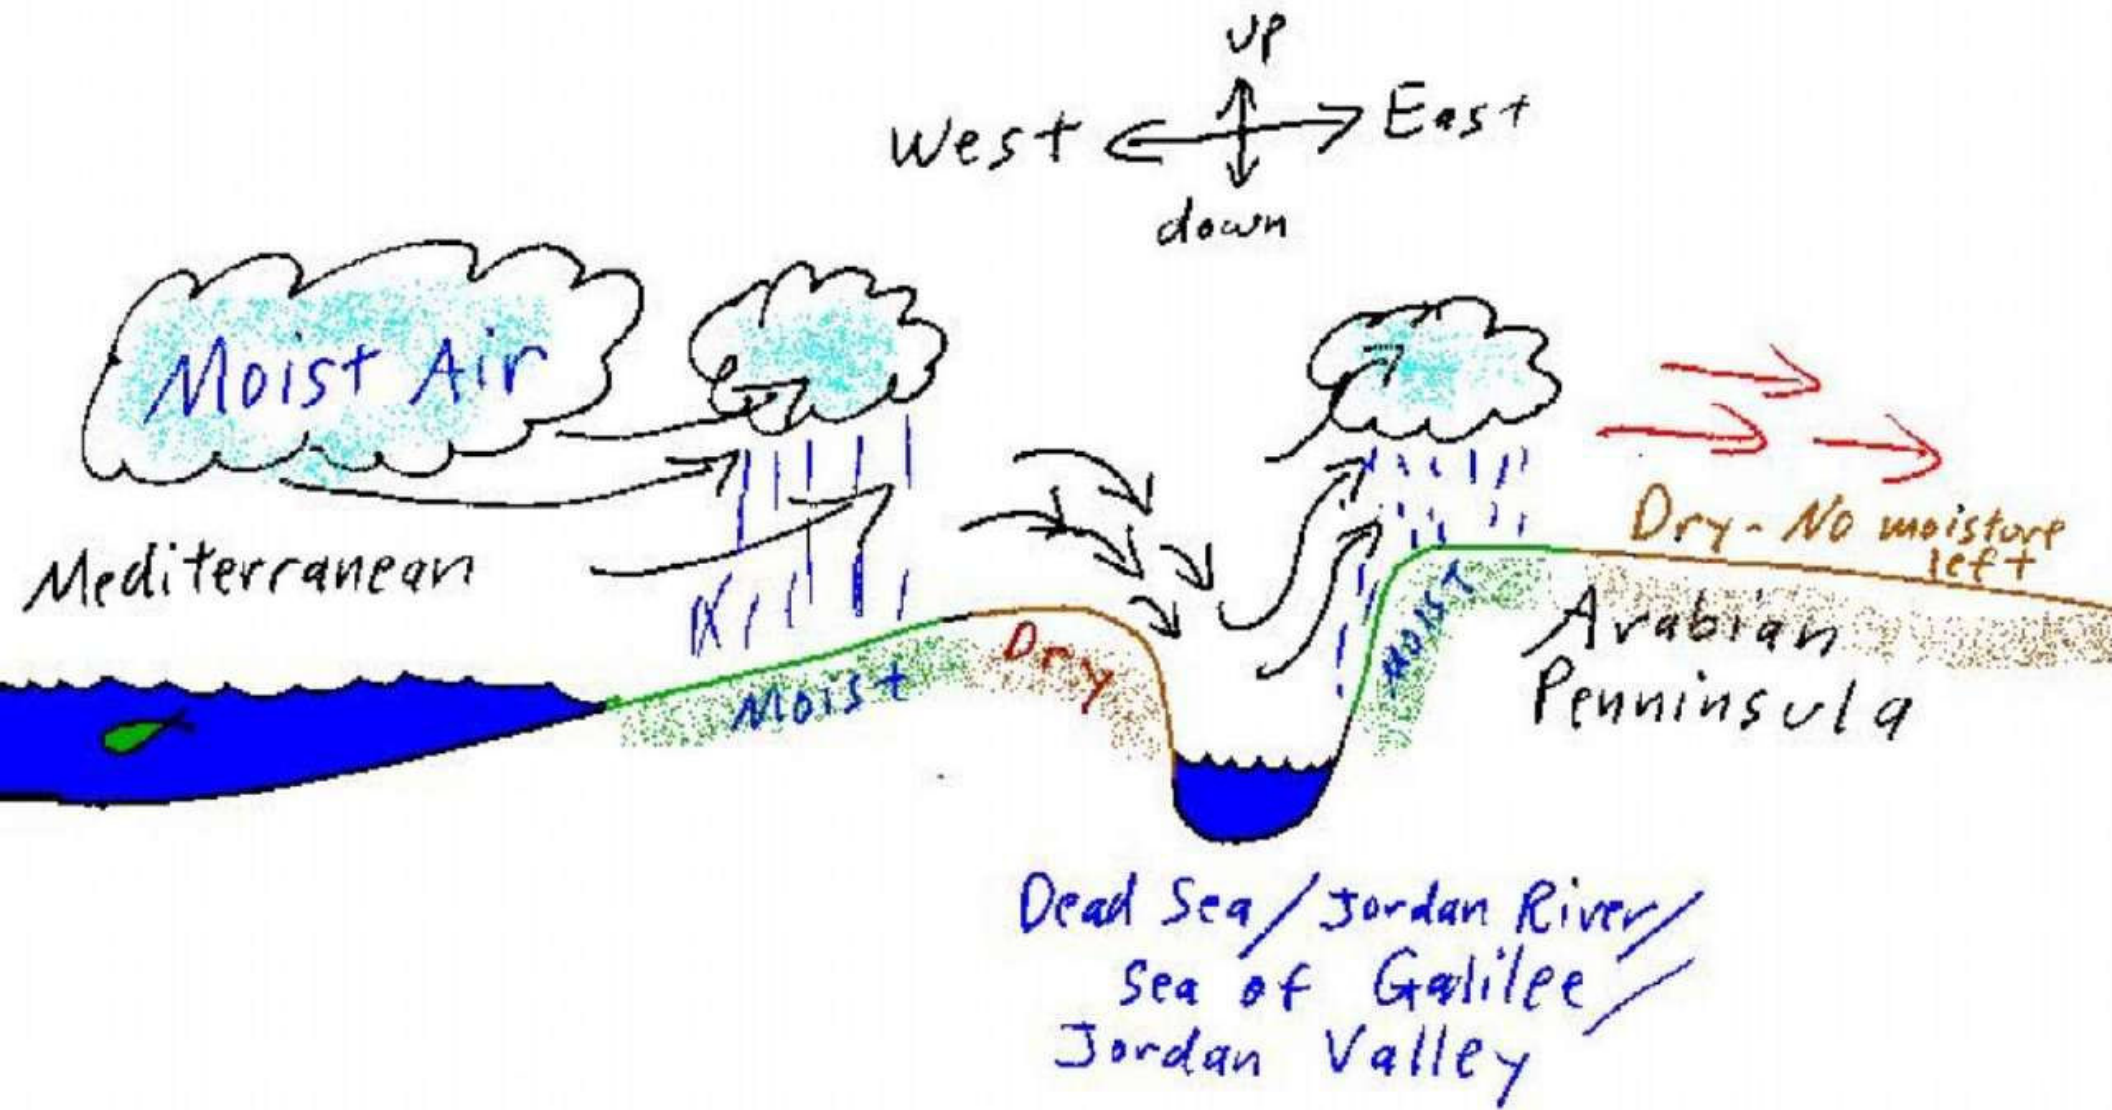 up
West East
down
Moist Air
Mediterranean
Moist
Dry
Moist
Dry - No moisture
left
Arabian
Penninsula
Dead Sea/Jordan River/
Sea of Galilee/
Jordan Valley